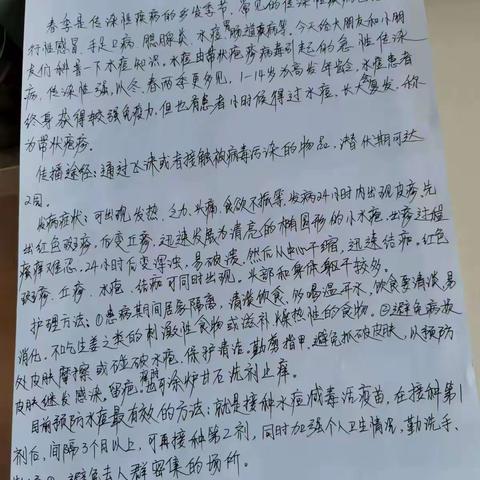 春季是传染性疾病的多发季节,常见的传染性疾病
行性感冒、手足口病、腮腺炎、水痘、肠道疾病等。今天给大朋友和小朋
友们科普一下水痘知识,水痘由带状疱疹病毒引起的急性传染
病,传染性强,以冬、春两季更多见,1-14岁为高发年龄,水痘患者
终身获得较强免疫力,但也有患者小时候得过水痘,长大复发,称
为带状疱疹。
传播途径:通过飞沫或者接触被病毒污染的物品,潜伏期可达
2周。
发病症状:可出现发热、乏力、头痛、食欲不振等。发病24小时内出现皮疹,先
出红色斑疹,后变丘疹,迅速发展为清亮的椭圆形的小水痘,出疹过程
瘙痒难忍。24小时后变浑浊,易破溃,然后从中心干缩,迅速结痂。红色
斑疹、丘疹、水疱、结痂可同时出现。头部和身体躯干较多。
护理方法:①患病期间居家隔离,清淡饮食,多喝温开水,饮食要清淡,易
消化,不吃生姜之类的刺激性食物或滋补燥热性的食物。②避免病发
处皮肤摩擦或碰破水痘,保护清洁。勤剪指甲,避免抓破皮肤,以预防
皮肤继发感染。留疤,也可涂炉甘石洗剂止痒。
目前预防水痘最有效的方法:就是接种水痘减毒活疫苗,在接种第1
剂后,间隔3个月以上,可再接种第2剂,同时加强个人卫生情况,勤洗手、
避免去人群密集的场所。